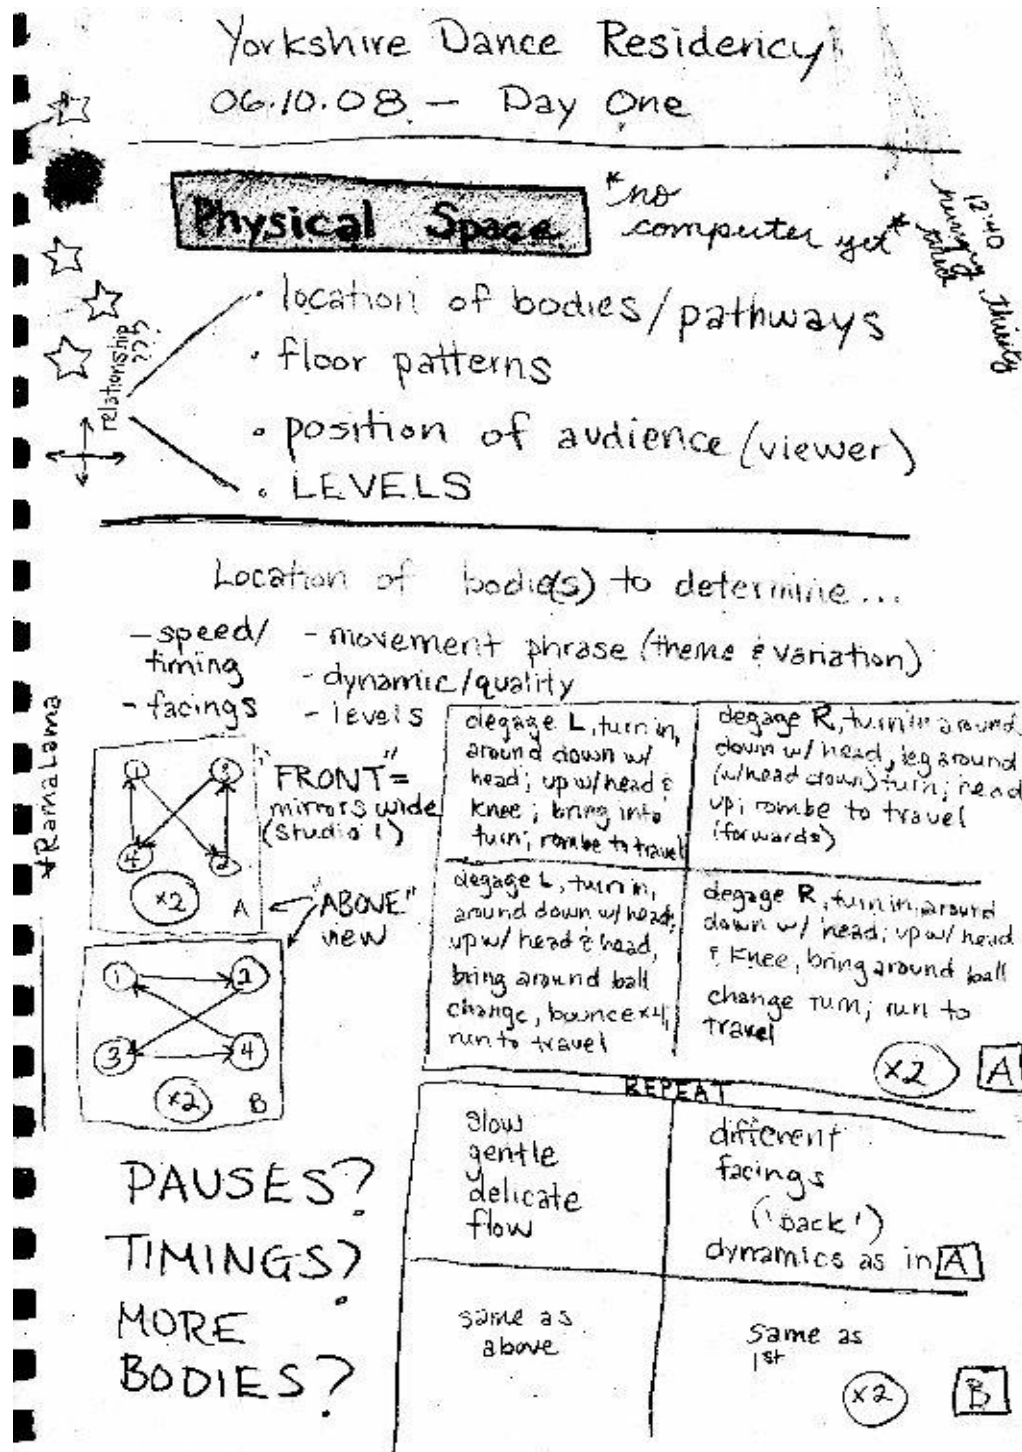 Yorkshire Dance Residency
06.10.08 - Day One
Physical Space
*no
computer yet*
12:40
hungry, thirsty
relationship
???
• location of bodies/pathways
• floor patterns
• position of audience (viewer)
• LEVELS
Location of bodie(s) to determine...
-speed/
timing
-facings
- movement phrase (theme & variation)
- dynamic/quality
- levels
*RamaLama
1
3
4
2
x2
A
"FRONT"=
mirrors wide
(Studio 1)
"ABOVE"
view
1
2
3
4
x2
B
degage L, turn in,
around down w/
head; up w/ head &
knee; bring into
turn; rombe to travel
degage R, turn in around
down w/ head, leg around
(w/head down) turn; head
up; rombe to travel
(forwards)
degage L, turn in,
around down w/ head,
up w/ head & head,
bring around ball
change, bounce x4,
run to travel
degage R, turn in, around
down w/ head; up w/ head
& knee, bring around ball
change turn; run to
travel
x2
A
REPEAT
slow
gentle
delicate
flow
different
facings
('back')
dynamics as in A
same as
above
same as
1st
x2
B
PAUSES?
TIMINGS?
MORE
BODIES?